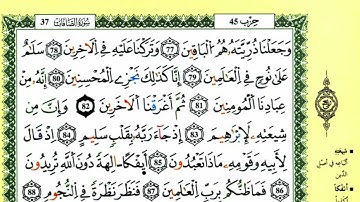 37 سورة الصافات
حزب 45
وَجَعَلْنَا ذُرِّيَّتَهُۥ هُمُ ٱلْبَاقِينَ 77 وَتَرَكْنَا عَلَيْهِ فِى ٱلْءَاخِرِينَ 78 سَلَٰمٌ
عَلَىٰ نُوحٍ فِى ٱلْعَٰلَمِينَ 79 إِنَّا كَذَٰلِكَ نَجْزِى ٱلْمُحْسِنِينَ 80 إِنَّهُۥ مِنْ
عِبَادِنَا ٱلْمُؤْمِنِينَ 81 ثُمَّ أَغْرَقْنَا ٱلْءَاخَرِينَ 82 وَإِنَّ مِن
شِيعَتِهِۦ لَإِبْرَٰهِيمَ 83 إِذْ جَآءَ رَبَّهُۥ بِقَلْبٍ سَلِيمٍ 84 إِذْ قَالَ
لِأَبِيهِ وَقَوْمِهِۦ مَاذَا تَعْبُدُونَ 85 أَئِفْكًا ءَالِهَةً دُونَ ٱللَّهِ تُرِيدُونَ
86 فَمَا ظَنُّكُم بِرَبِّ ٱلْعَٰلَمِينَ 87 فَنَظَرَ نَظْرَةً فِى ٱلنُّجُومِ 88
شيعته